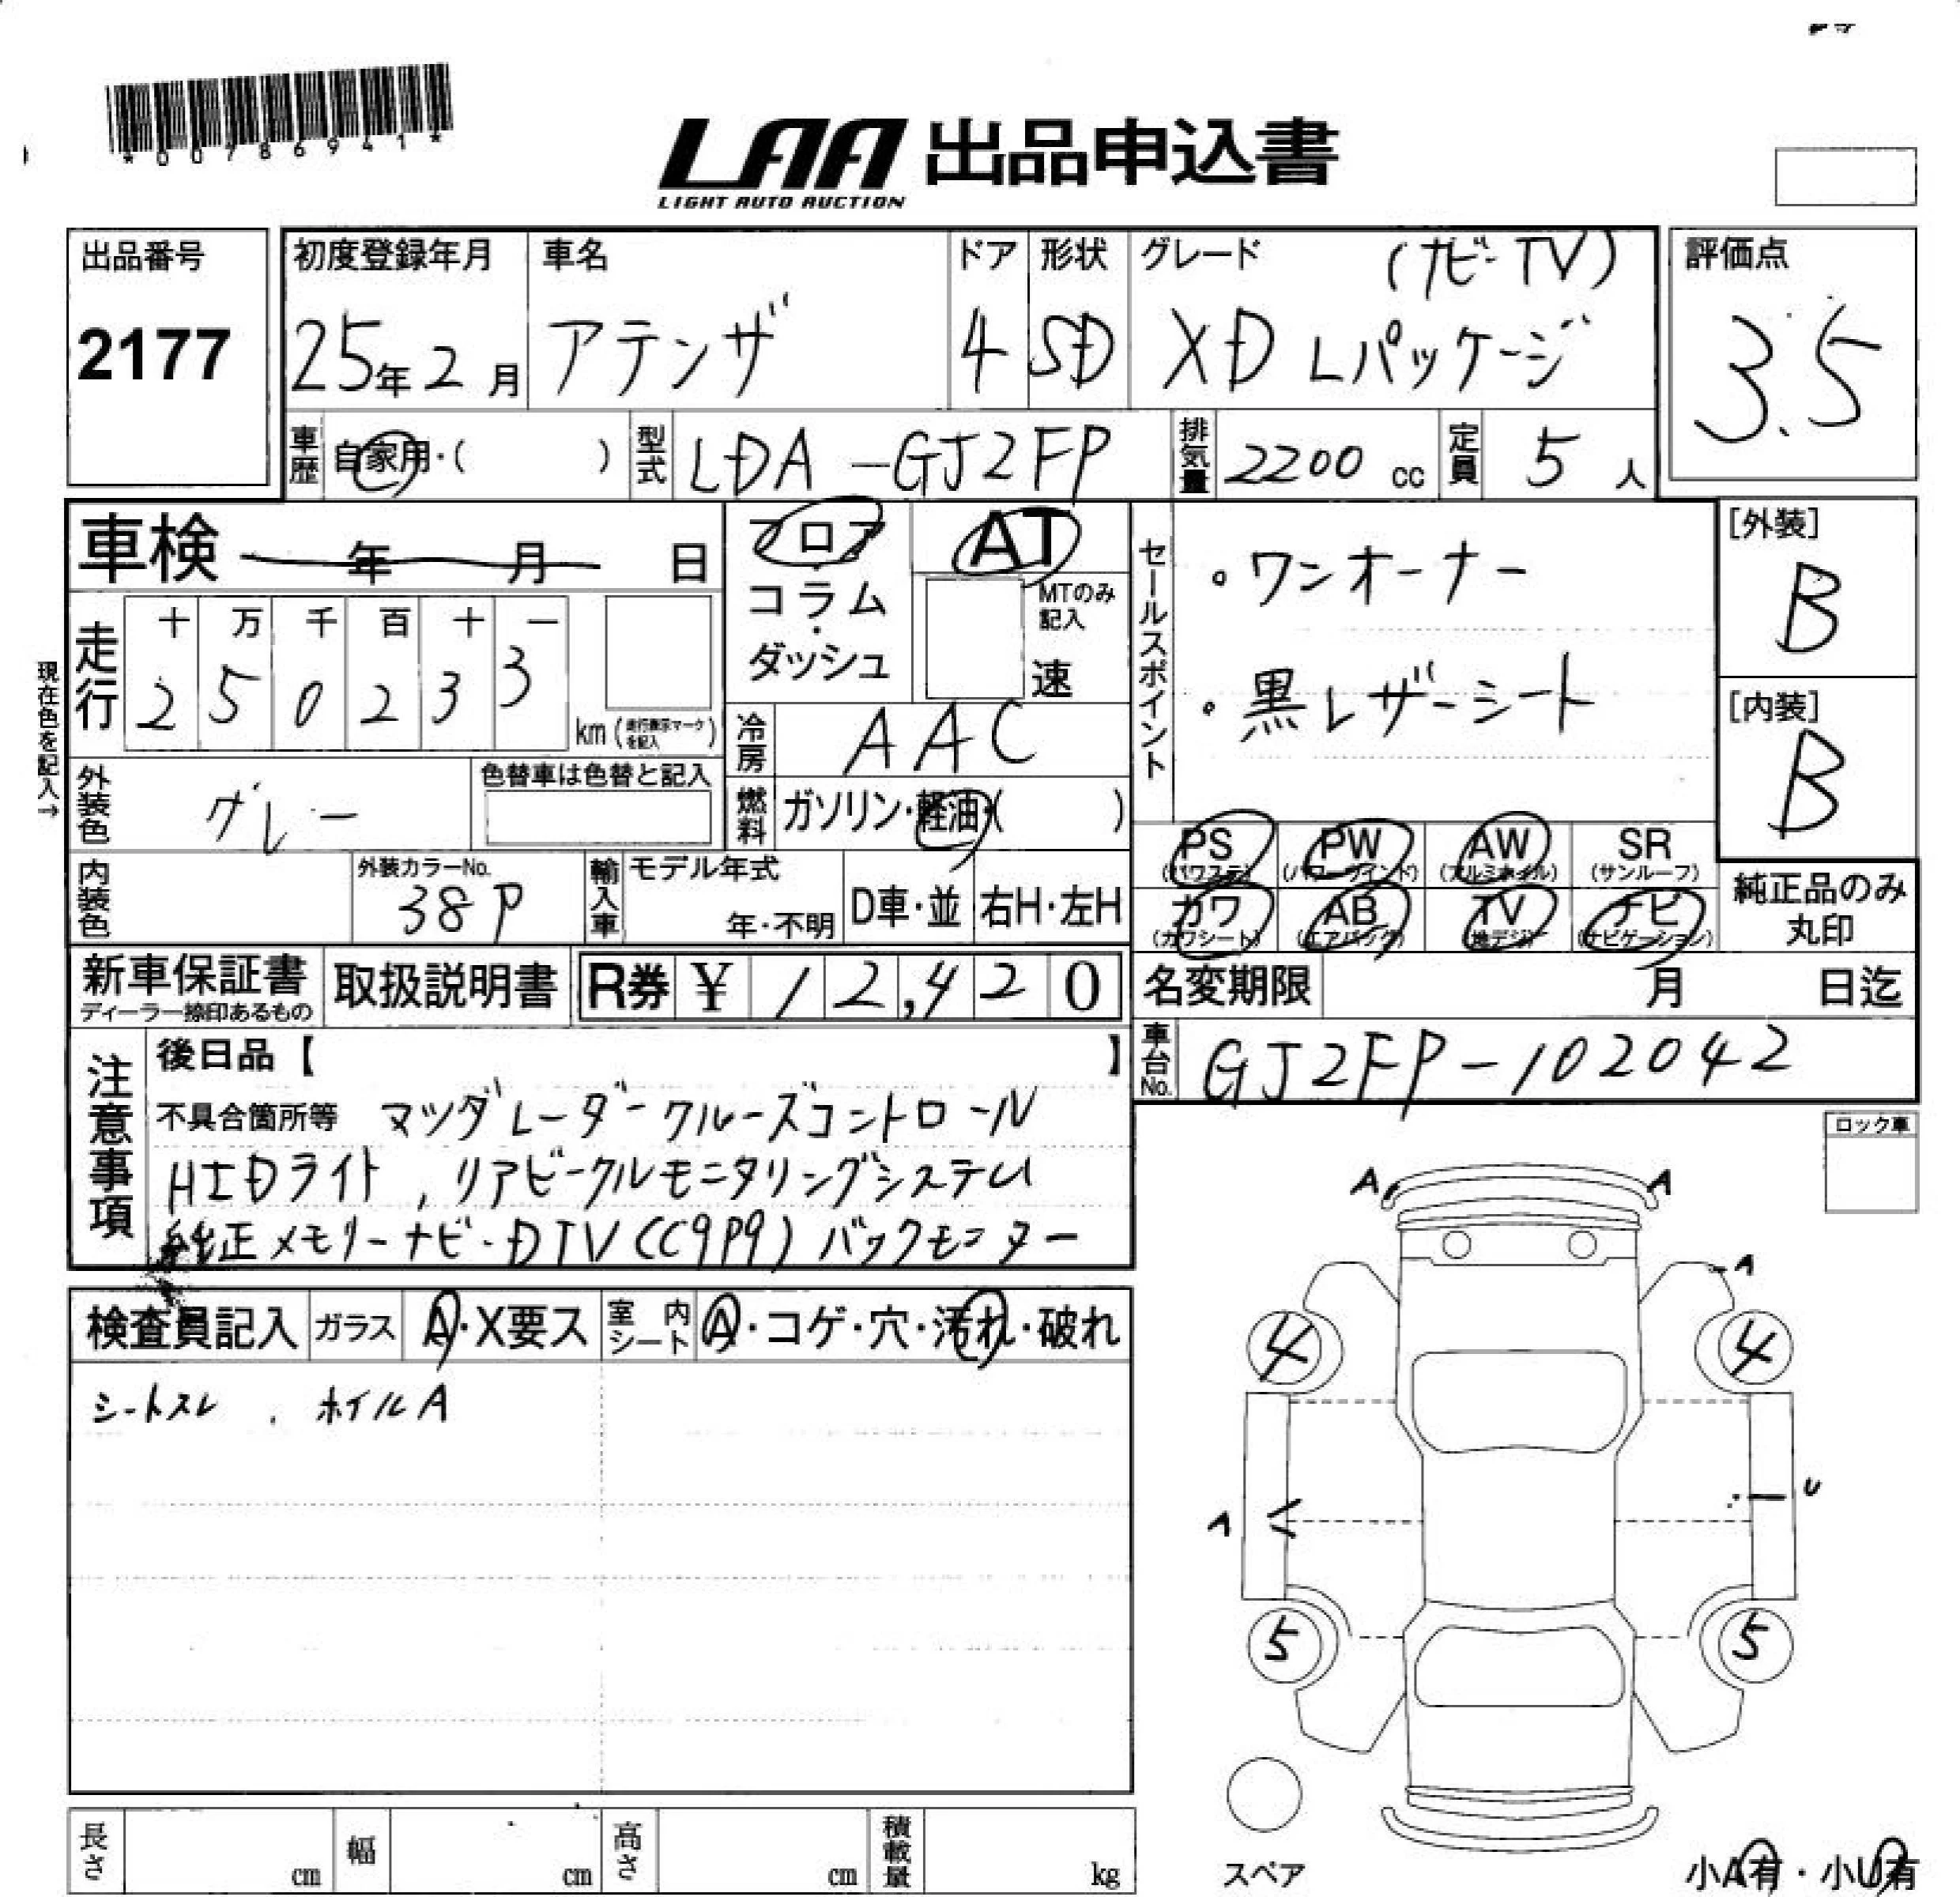 *00786941*
LAA 出品申込書
LIGHT AUTO AUCTION
出品番号
2177
初度登録年月
25年2月
車名
アテンザ
ドア
4
形状
SD
グレード (ナビ-TV)
XD Lパッケージ
評価点
3.5
車歴 自家用・( )
型式 LDA-GJ2FP
排気量 2200 cc
定員 5人
車検 年 月 日
フロア
コラム
・
ダッシュ
AT
MTのみ
記入
速
セールスポイント
・ワンオーナー
・黒レザーシート
[外装]
B
[内装]
B
現在色を記入→
走行
十 万 千 百 十 一
2 5 0 2 3 3
km (走行表示マークを記入)
冷房 AAC
外装色 グレー
色替車は色替と記入
燃料 ガソリン・軽油・( )
PS (パワステ)
PW (パワーウインド)
AW (アルミホイル)
SR (サンルーフ)
カワ (カワシート)
AB (エアバック)
TV (地デジ)
ナビ (ナビゲーション)
純正品のみ
丸印
内装色
外装カラーNo.
38P
輸入車
モデル年式
年・不明
D車・並
右H・左H
新車保証書
ディーラー捺印あるもの
取扱説明書
R券 ¥ 12,420
名変期限 月 日迄
車台No. GJ2FP-102042
注意事項
後日品【 】
不具合箇所等 マツダレーダークルーズコントロール
HIDライト,リアビークルモニタリングシステム
純正メモリーナビ-DTV(C9P9)バックモニター
ロック車
検査員記入
ガラス A・X要ス
室内シート A・コゲ・穴・汚れ・破れ
シートスレ , ホイルA
A A
A
4 4
A U
5 5
スペア
小A有・小U有
長さ cm
幅 cm
高さ cm
積載量 kg